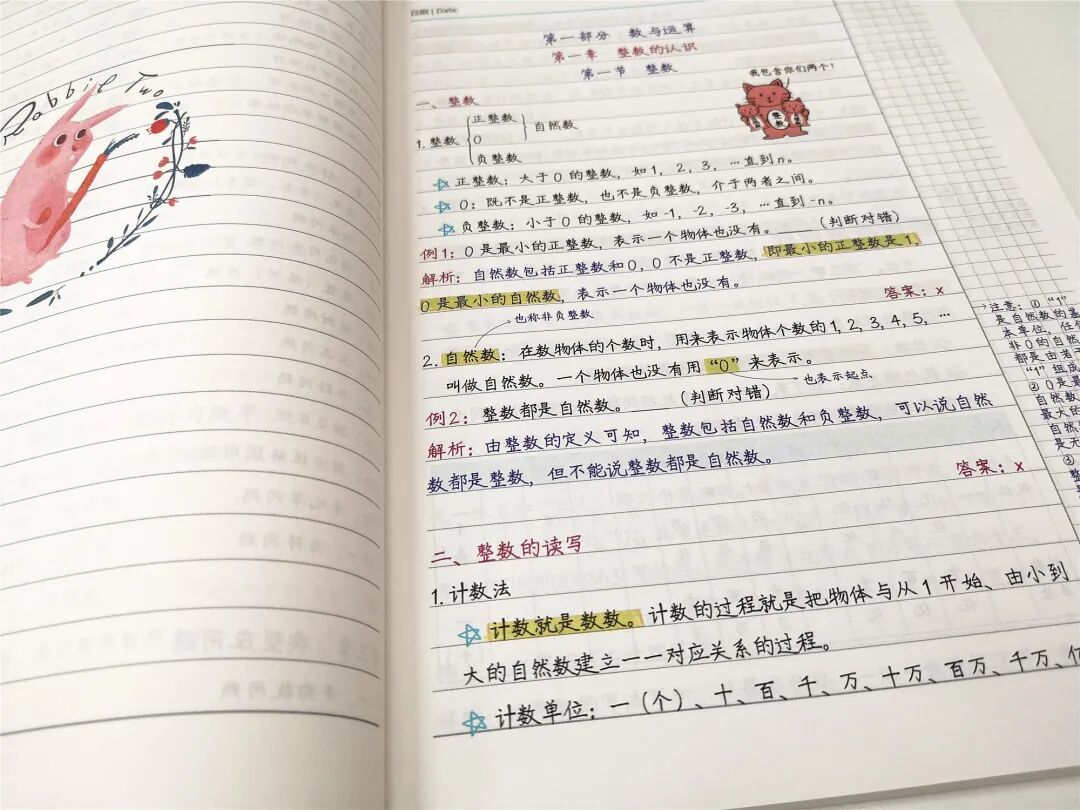 Rabbit Two
日期 | Date
第一部分 数与运算
第一章 整数的认识
第一节 整数
我包含你们两个!
一、整数
1.整数
正整数
0
自然数
负整数
正整数：大于0的整数，如1，2，3，…直到n。
0：既不是正整数，也不是负整数，介于两者之间。
负整数：小于0的整数，如-1，-2，-3，…直到-n。
例1：0是最小的正整数，表示一个物体也没有。____(判断对错)
解析：自然数包括正整数和0，0不是正整数，即最小的正整数是1，
0是最小的自然数，表示一个物体也没有。
答案：x
也称非负整数
2.自然数：在数物体的个数时，用来表示物体个数的1，2，3，4，5，…
叫做自然数。一个物体也没有用“0”来表示。
也表示起点
例2：整数都是自然数。____(判断对错)
解析：由整数的定义可知，整数包括自然数和负整数，可以说自然
数都是整数，但不能说整数都是自然数。
答案：x
二、整数的读写
1.计数法
计数就是数数。计数的过程就是把物体与从1开始、由小到
大的自然数建立一一对应关系的过程。
计数单位：一（个）、十、百、千、万、十万、百万、千万、亿
注意：①“1”
是自然数的基
本单位，任
非0的自然
都是由若
“1”组成
②0是最
自然数
最大的
自然
是无
③
整